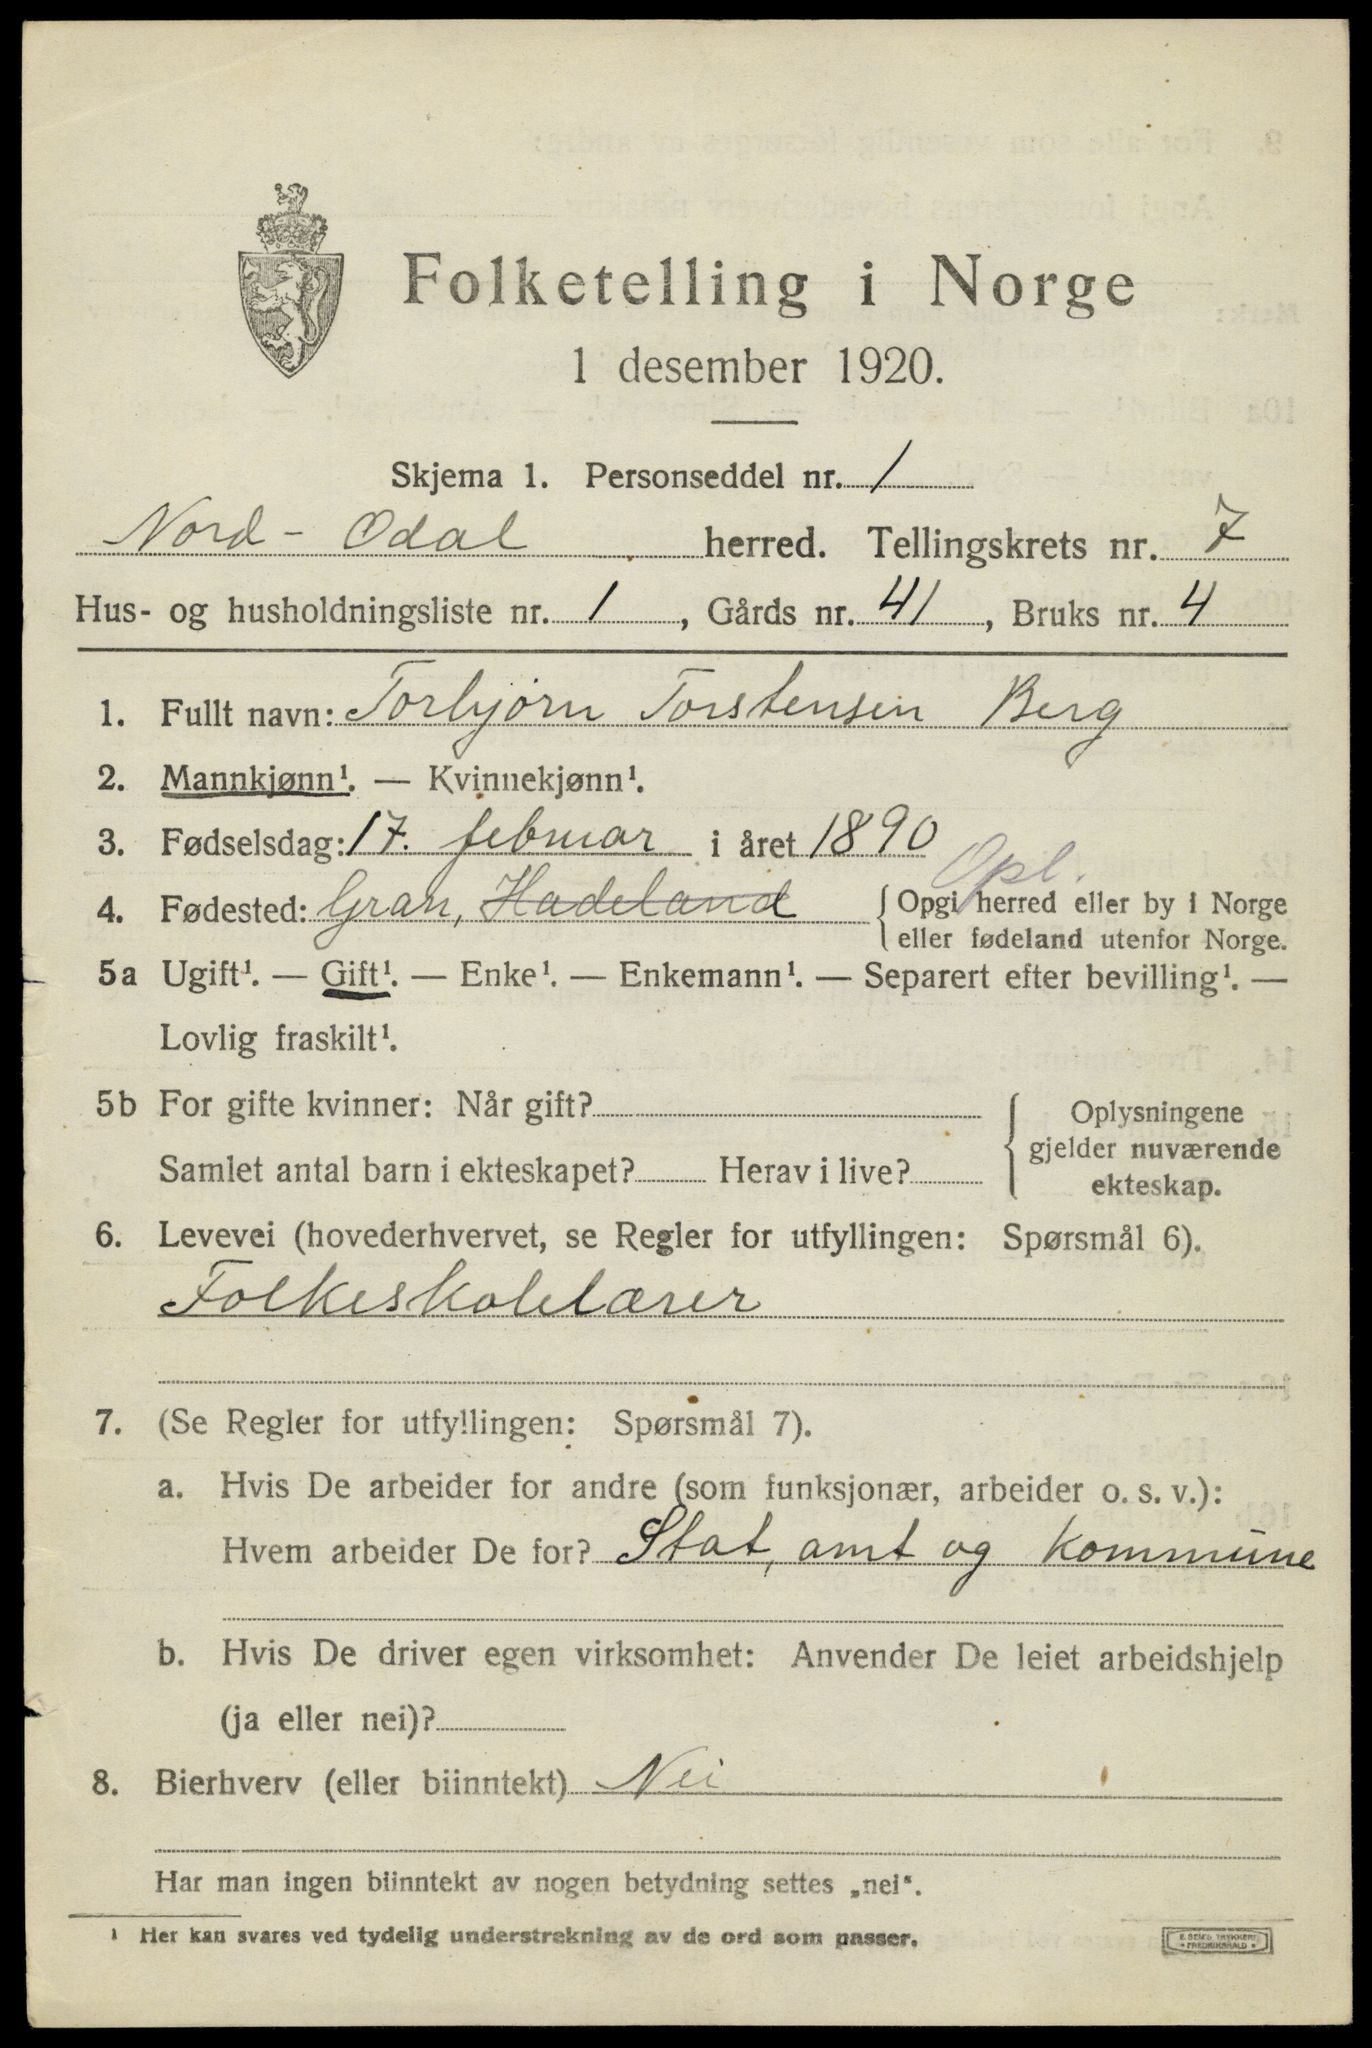 Folketelling i Norge
1 desember 1920.
Skjema 1. Personseddel nr. 1
Nord-Odal herred. Tellingskrets nr. 7
Hus- og husholdningsliste nr. 1, Gårds nr. 41, Bruks nr. 4
1. Fullt navn: Torbjørn Torstensen Berg
2. Mannkjønn¹. — Kvinnekjønn¹.
3. Fødselsdag: 17. februar i året 1890
Opl.
4. Fødested: Gran, Hadeland { Opgi herred eller by i Norge
eller fødeland utenfor Norge.
5a Ugift¹. — Gift¹. — Enke¹. — Enkemann¹. — Separert efter bevilling¹. —
Lovlig fraskilt¹.
5b For gifte kvinner: Når gift?
Samlet antal barn i ekteskapet? Herav i live?
{ Oplysningene
gjelder nuværende
ekteskap.
6. Levevei (hovederhvervet, se Regler for utfyllingen: Spørsmål 6).
Folkeskolelærer
7. (Se Regler for utfyllingen: Spørsmål 7).
a. Hvis De arbeider for andre (som funksjonær, arbeider o. s. v.):
Hvem arbeider De for? Stat, amt og kommune
b. Hvis De driver egen virksomhet: Anvender De leiet arbeidshjelp
(ja eller nei)?
8. Bierhverv (eller biinntekt) Nei
Har man ingen biinntekt av nogen betydning settes „nei“.
¹ Her kan svares ved tydelig understrekning av de ord som passer.